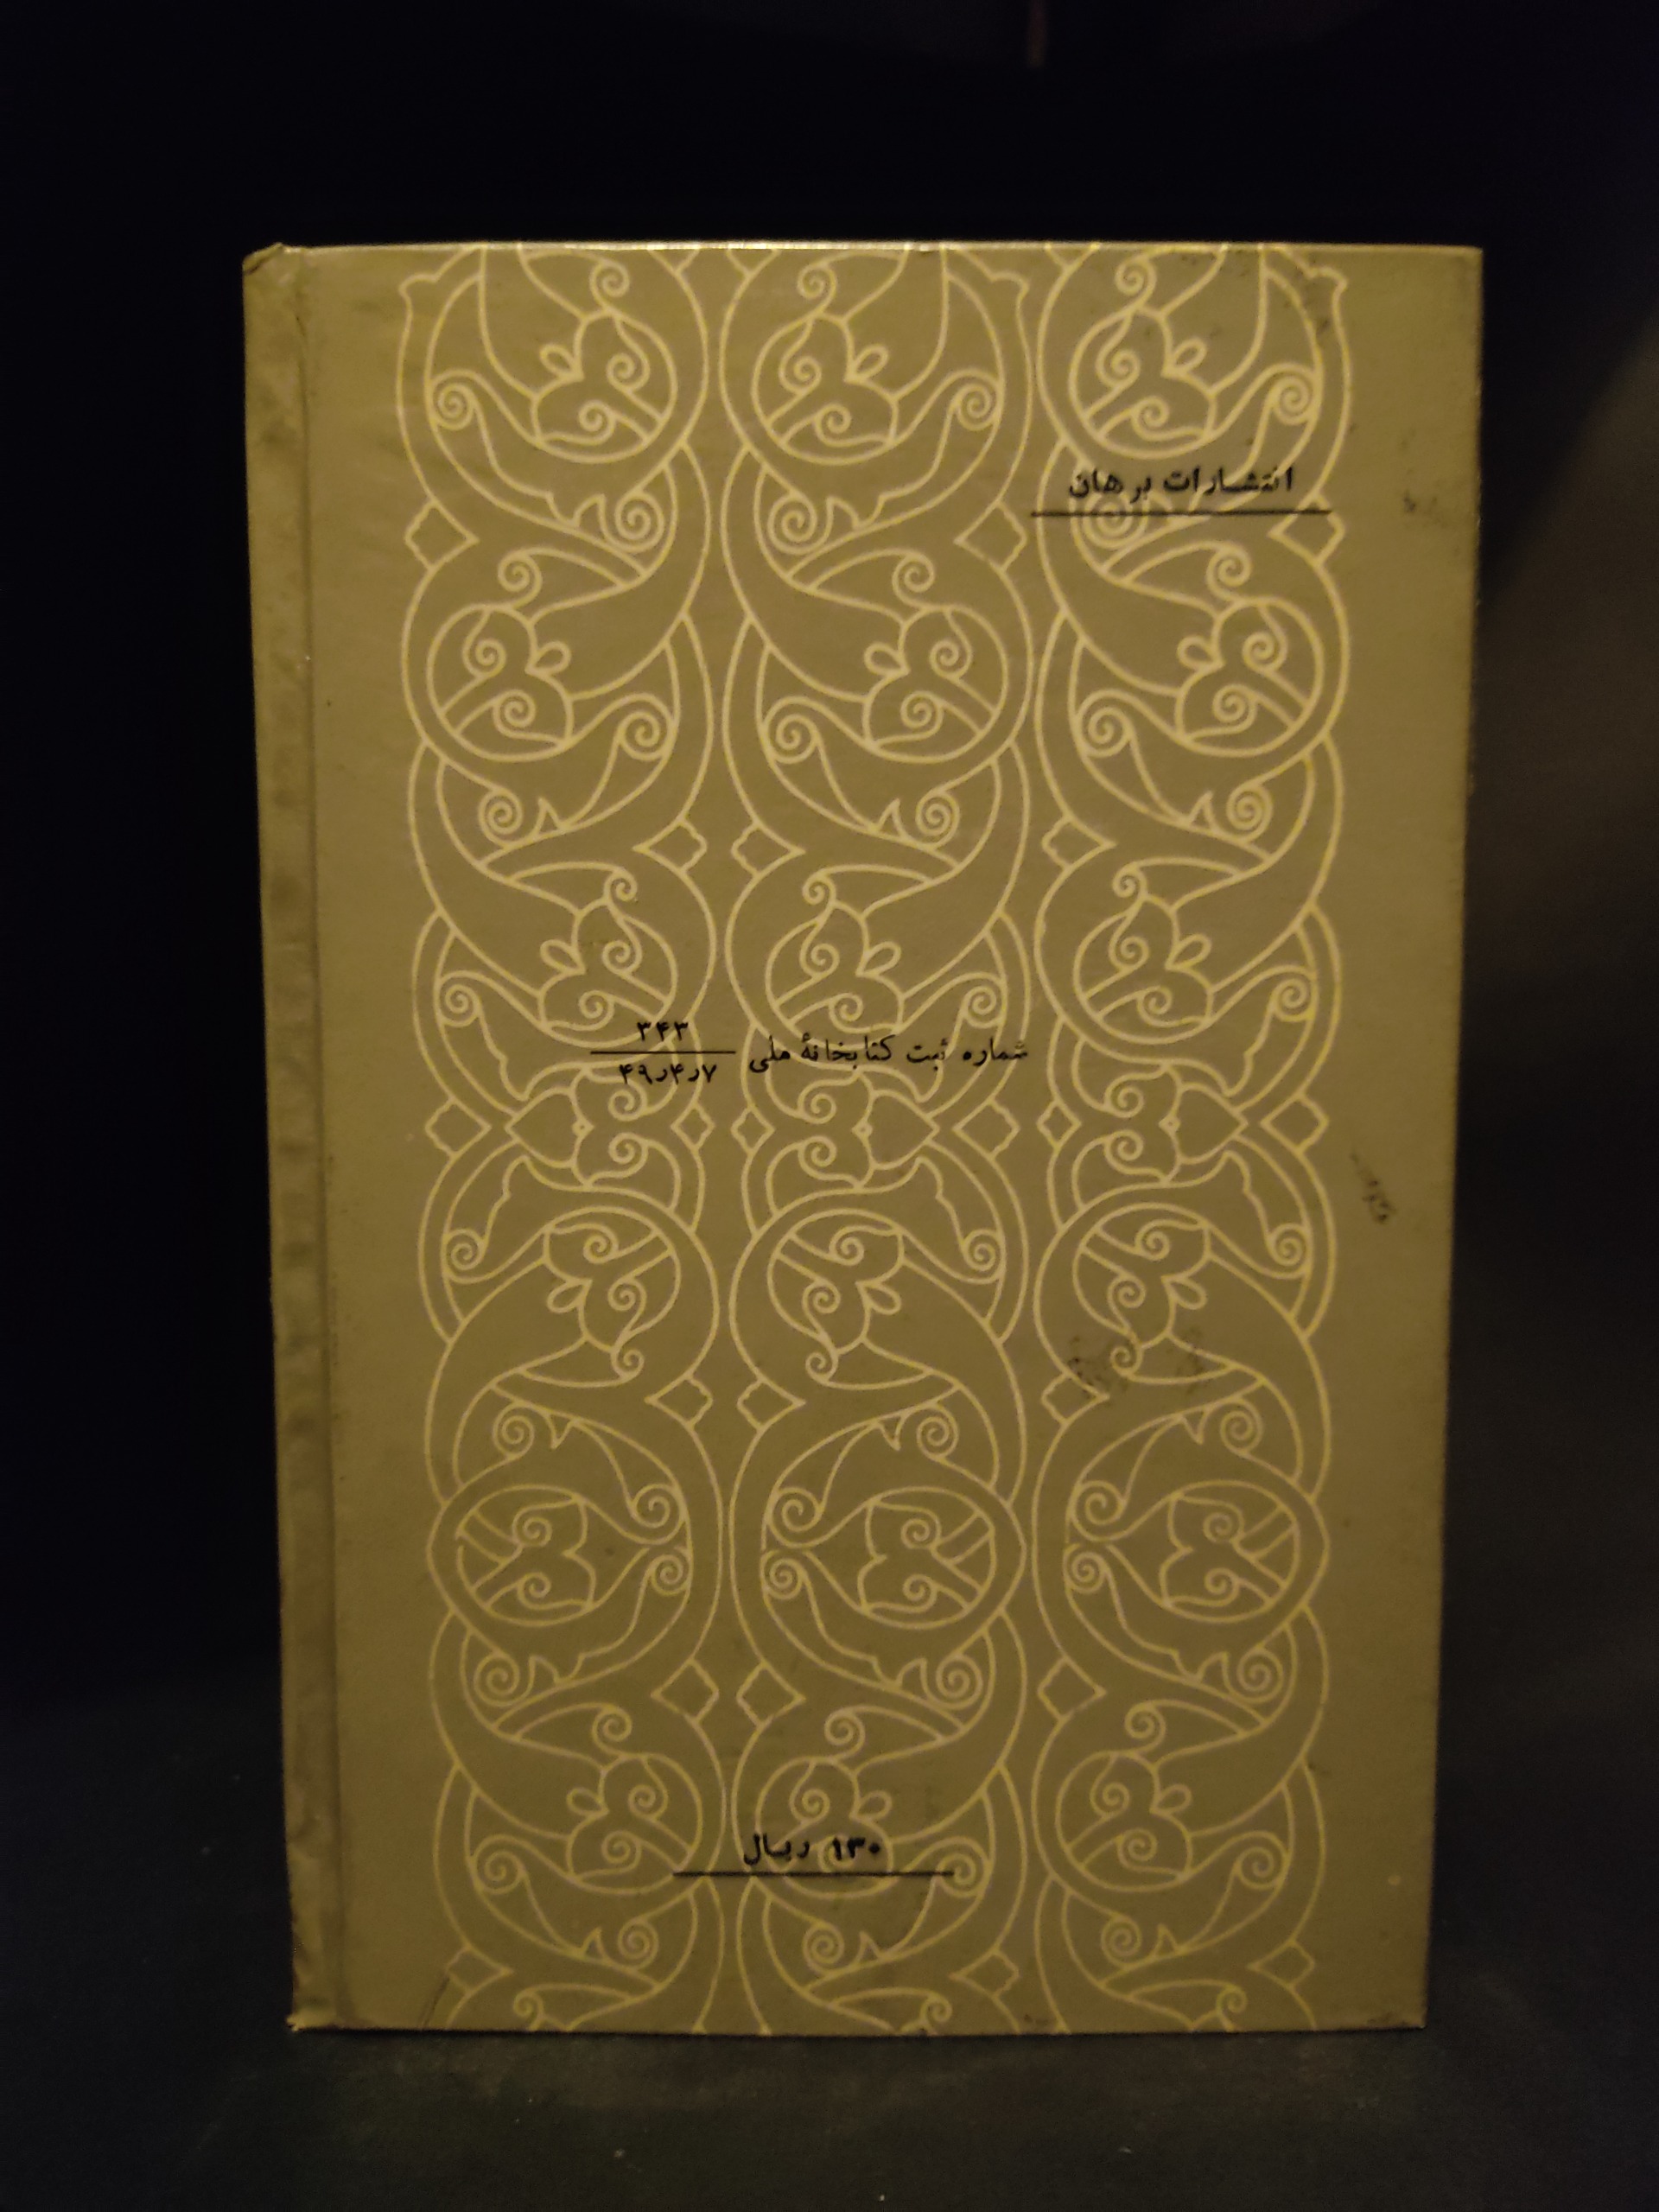 انتشارات برهان
شماره ثبت کتابخانهٔ ملی ۳۴۳
۴۹ر۴ر۷
۱۳۰ ریال